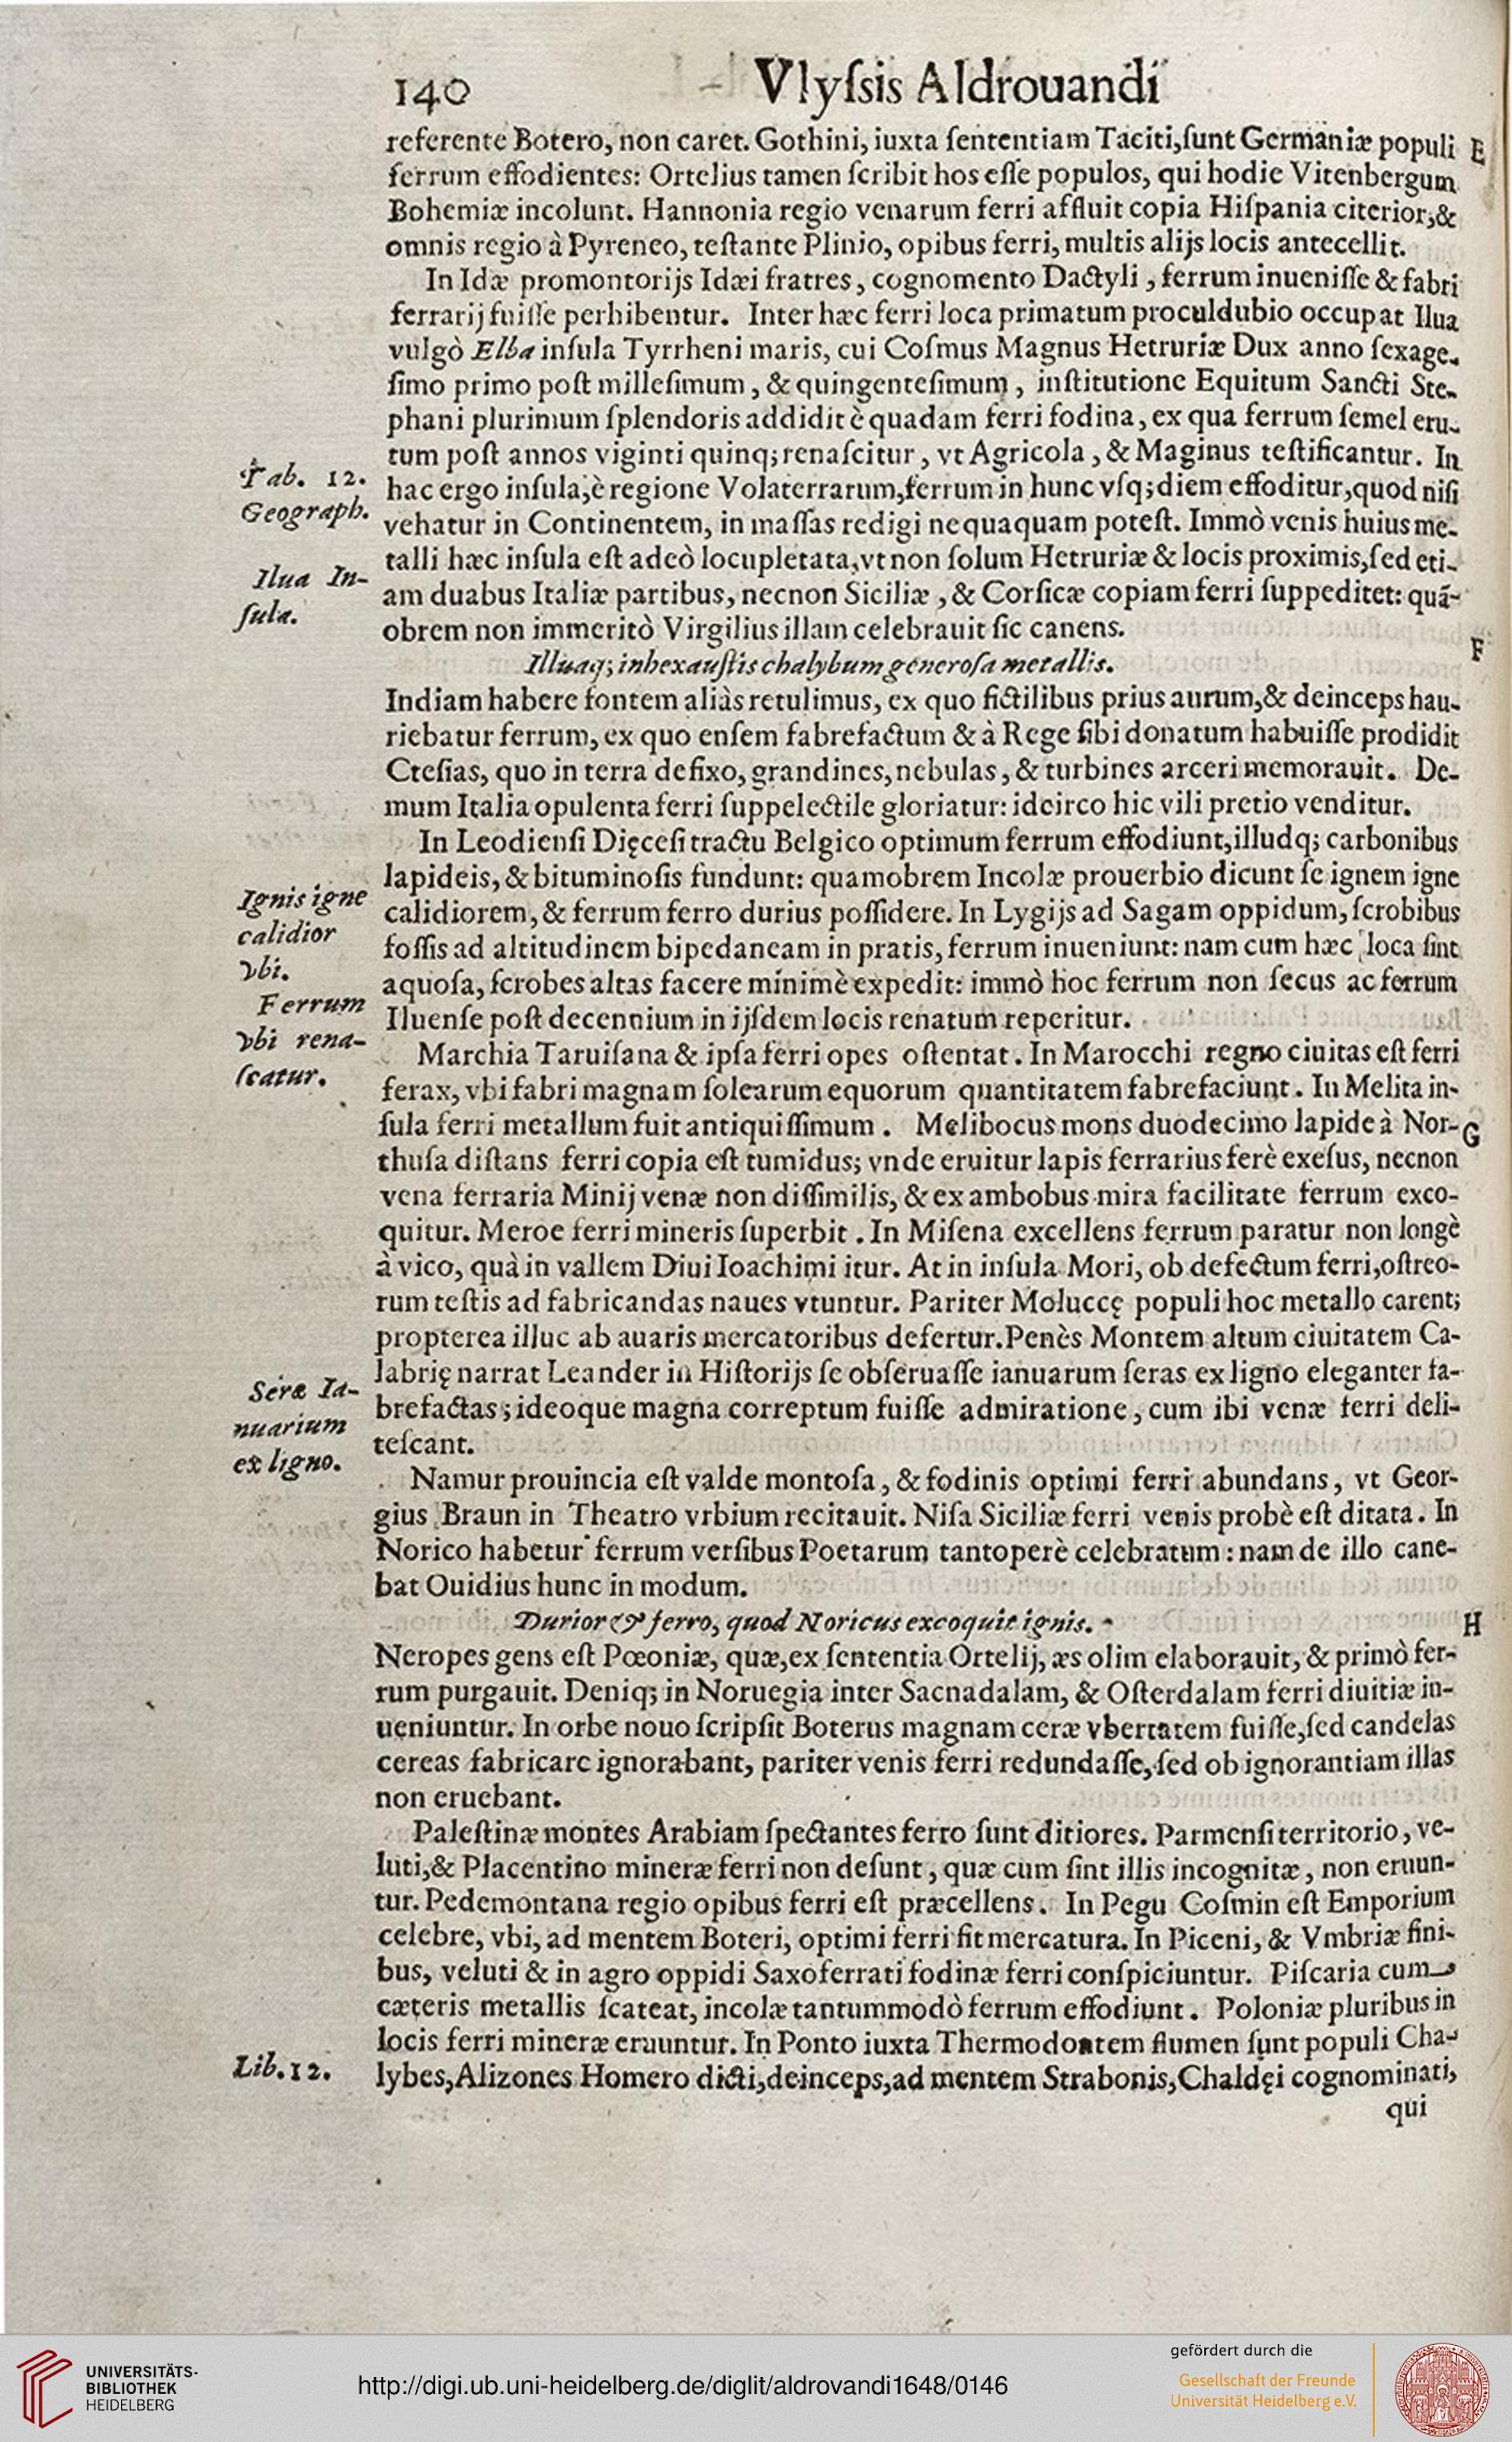 140 Vlyſsis Aldrouandi
referente Botero, non caret. Gothini, iuxta ſententiam Taciti,ſunt Germaniæ populi E
ferrum effodientes: Ortelius tamen ſcribit hos eſſe populos, qui hodie Vitenbergum
Bohemiæ incolunt. Hannonia regio venarum ferri affluit copia Hiſpania citerior,&
omnis regio à Pyreneo, teſtante Plinio, opibus ferri, multis alijs locis antecellit.
In Idæ promontorijs Idæi fratres, cognomento Dactyli, ferrum inueniſſe & fabri
ferrarij fuiſſe perhibentur. Inter hæc ferri loca primatum proculdubio occupat Ilua
vulgò Elba inſula Tyrrheni maris, cui Coſmus Magnus Hetruriæ Dux anno ſexage-
ſimo primo poſt milleſimum, & quingenteſimum, inſtitutione Equitum Sancti Ste-
phani plurimum ſplendoris addidit è quadam ferri fodina, ex qua ferrum ſemel eru-
tum poſt annos viginti quinq; renaſcitur, vt Agricola, & Maginus teſtificantur. In
Tab. 12.
Geograph.
hac ergo inſula, è regione Volaterrarum,ferrum in hunc vſq; diem effoditur,quod niſi
vehatur in Continentem, in maſſas redigi nequaquam poteſt. Immò venis huius me-
talli hæc inſula eſt adeò locupletata,vt non ſolum Hetruriæ & locis proximis,ſed eti-
Ilua In-
ſula.
am duabus Italiæ partibus, necnon Siciliæ, & Corſicæ copiam ferri ſuppeditet: quã-
obrem non immeritò Virgilius illam celebrauit ſic canens.
F
Illuaq; inhexauſtis chalybum generoſa metallis.
Indiam habere fontem aliàs retulimus, ex quo fictilibus prius aurum,& deinceps hau-
riebatur ferrum, ex quo enſem fabrefactum & à Rege ſibi donatum habuiſſe prodidit
Cteſias, quo in terra defixo, grandines, nebulas, & turbines arceri memorauit. De-
mum Italia opulenta ferri ſuppelectile gloriatur: idcirco hic vili pretio venditur.
In Leodienſi Dięceſi tractu Belgico optimum ferrum effodiunt,illudq; carbonibus
lapideis, & bituminoſis fundunt: quamobrem Incolæ prouerbio dicunt ſe ignem igne
Ignis igne
calidior
vbi.
calidiorem, & ferrum ferro durius poſſidere. In Lygijs ad Sagam oppidum, ſcrobibus
foſſis ad altitudinem bipedaneam in pratis, ferrum inueniunt: nam cum hæc loca ſint
aquoſa, ſcrobes altas facere minimè expedit: immò hoc ferrum non ſecus ac ferrum
Ferrum
vbi rena-
ſcatur.
Iluenſe poſt decennium in ijſdem locis renatum reperitur.
Marchia Taruiſana & ipſa ferri opes oſtentat. In Marocchi regno ciuitas eſt ferri
ferax, vbi fabri magnam ſolearum equorum quantitatem fabrefaciunt. In Melita in-
ſula ferri metallum fuit antiquiſſimum. Melibocus mons duodecimo lapide à Nor- G
thuſa diſtans ferri copia eſt tumidus; vnde eruitur lapis ferrarius ferè exeſus, necnon
vena ferraria Minij venæ non diſſimilis, & ex ambobus mira facilitate ferrum exco-
quitur. Meroe ferri mineris ſuperbit. In Miſena excellens ferrum paratur non longè
à vico, quà in vallem Diui Ioachimi itur. At in inſula Mori, ob defectum ferri,oſtreo-
rum teſtis ad fabricandas naues vtuntur. Pariter Moluccę populi hoc metallo carent;
propterea illuc ab auaris mercatoribus defertur. Penès Montem altum ciuitatem Ca-
labrię narrat Leander in Hiſtorijs ſe obſeruaſſe ianuarum ſeras ex ligno eleganter fa-
Seræ Ia-
nuarium
ex ligno.
brefactas; ideoque magna correptum fuiſſe admiratione, cum ibi venæ ferri deli-
teſcant.
Namur prouincia eſt valde montoſa, & fodinis optimi ferri abundans, vt Geor-
gius Braun in Theatro vrbium recitauit. Niſa Siciliæ ferri venis probè eſt ditata. In
Norico habetur ferrum verſibus Poetarum tantoperè celebratum: nam de illo cane-
bat Ouidius hunc in modum.
Durior & ferro, quod Noricus excoquit ignis. H
Neropes gens eſt Pœoniæ, quæ,ex ſententia Ortelij, æs olim elaborauit, & primò fer-
rum purgauit. Deniq; in Noruegia inter Sacnadalam, & Oſterdalam ferri diuitiæ in-
ueniuntur. In orbe nouo ſcripſit Boterus magnam ceræ vbertatem fuiſſe,ſed candelas
cereas fabricare ignorabant, pariter venis ferri redundaſſe, ſed ob ignorantiam illas
non eruebant.
Paleſtinæ montes Arabiam ſpectantes ferro ſunt ditiores. Parmenſi territorio, ve-
luti,& Placentino mineræ ferri non deſunt, quæ cum ſint illis incognitæ, non eruun-
tur. Pedemontana regio opibus ferri eſt præcellens. In Pegu Coſmin eſt Emporium
celebre, vbi, ad mentem Boteri, optimi ferri fit mercatura. In Piceni, & Vmbriæ fini-
bus, veluti & in agro oppidi Saxoferrati fodinæ ferri conſpiciuntur. Piſcaria cum
cæteris metallis ſcateat, incolæ tantummodò ferrum effodiunt. Poloniæ pluribus in
locis ferri mineræ eruuntur. In Ponto iuxta Thermodontem flumen ſunt populi Cha-
Lib.12.
lybes,Alizones Homero dicti,deinceps,ad mentem Strabonis,Chaldęi cognominati,
qui
UNIVERSITÄTS-
BIBLIOTHEK
HEIDELBERG
http://digi.ub.uni-heidelberg.de/diglit/aldrovandi1648/0146
gefördert durch die
Gesellschaft der Freunde
Universität Heidelberg e.V.